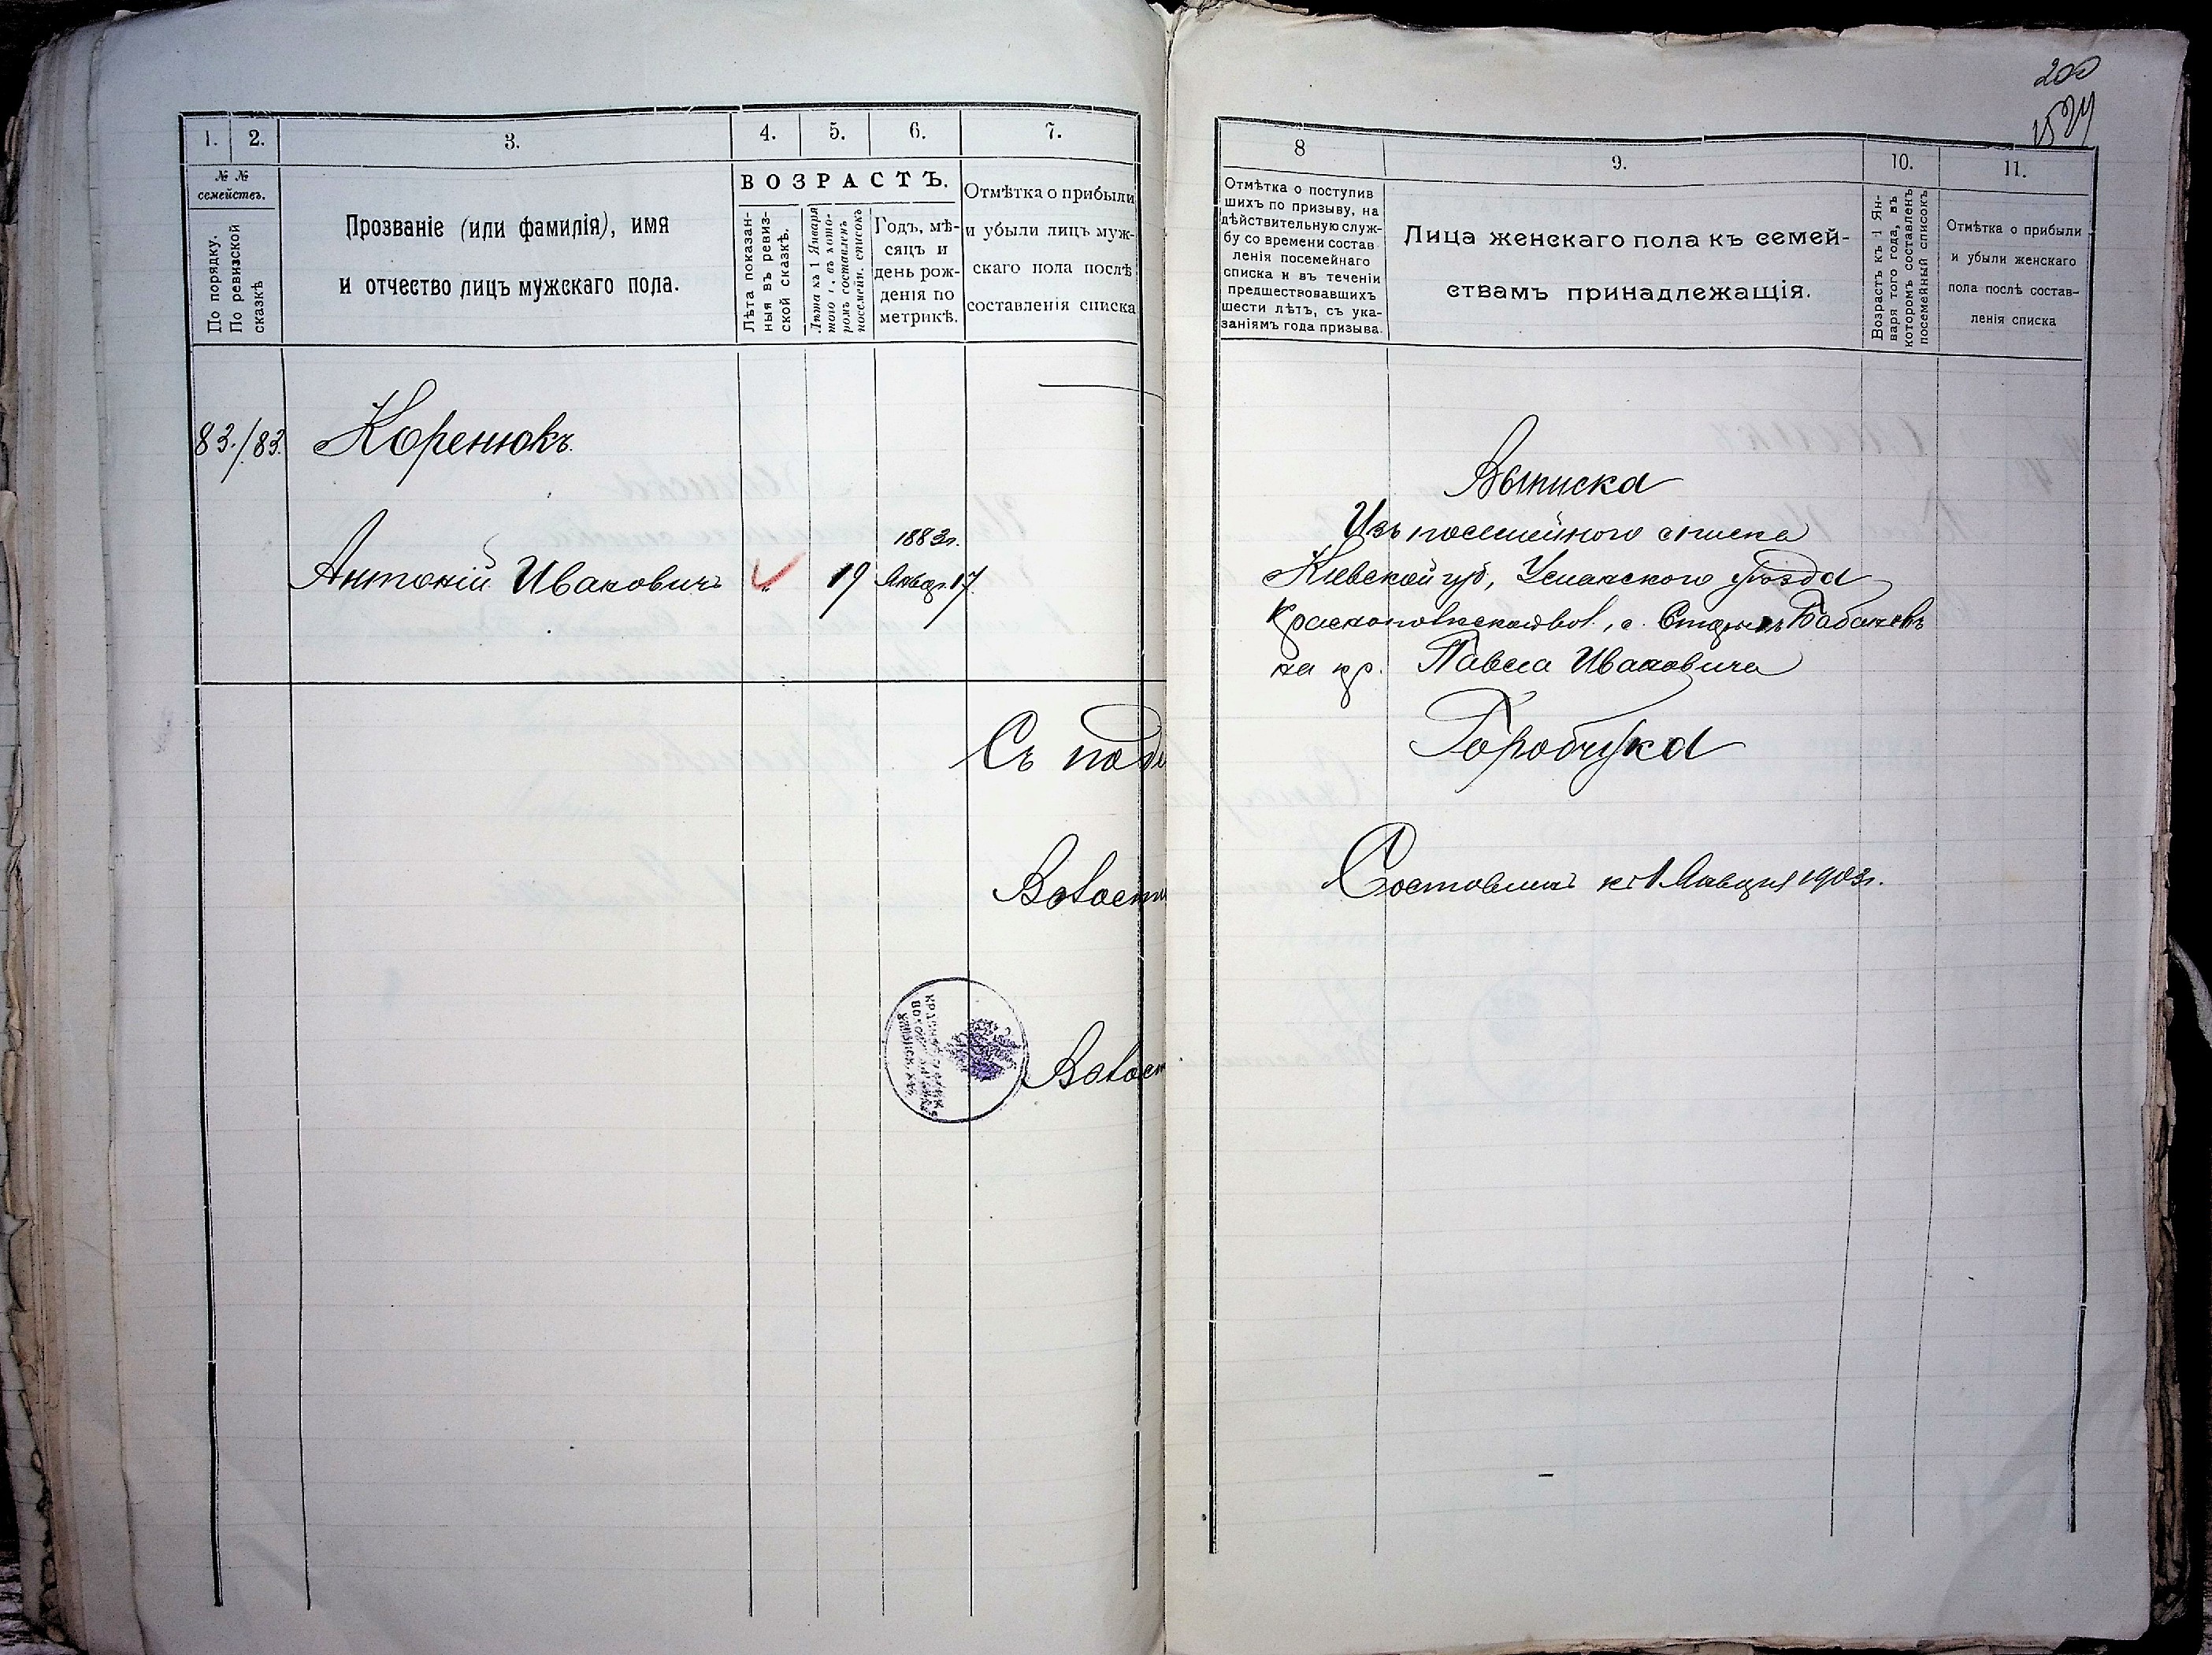 1. 2. 3. 4. 5. 6. 7.
№ №
семействъ.
По порядку.
По ревизской
сказкѣ
Прозваніе (или фамилія), имя
и отчество лицъ мужскаго пола.
ВОЗРАСТЪ.
Лѣта показан-
ныя въ ревиз-
ской сказкѣ.
Лѣта къ 1 Января
того г. въ кото-
ромъ составленъ
посемейн. списокъ
Годъ, мѣ-
сяцъ и
день рож-
денія по
метрикѣ.
Отмѣтка о прибыли
и убыли лицъ муж-
скаго пола послѣ
составленія списка
83./83. Коренюкъ
1883г.
Антоній Ивановичъ 19 Январ. 17.
Съ подл
Волостн
Волост
200
8 9. 10. 11.
Отмѣтка о поступив
шихъ по призыву, на
дѣйствительную служ-
бу со времени состав
ленія посемейнаго
списка и въ теченіи
предшествовавшихъ
шести лѣтъ, съ ука-
заніямъ года призыва.
Лица женскаго пола къ семей-
ствамъ принадлежащія.
Возрастъ къ 1 Ян-
варя того года, въ
которомъ составленъ
посемейный списокъ
Отмѣтка о прибыли
и убыли женскаго
пола послѣ состав-
ленія списка
Выписка
Изъ посемейного списка
Кіевской губ, Уманского уѣзда
вол., с. Старыхъ Бабановъ
на кр. Павла Ивановича
Горобчука
Составленъ къ 1 Января 1903г.